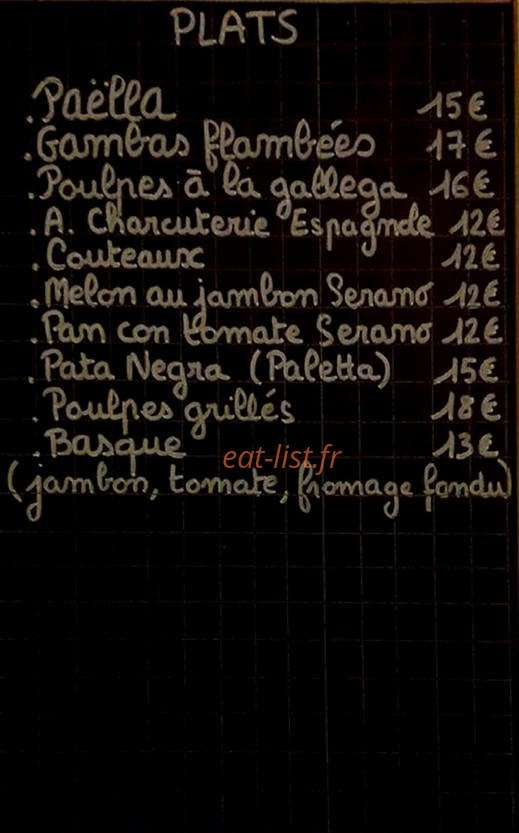 PLATS
. Paëlla 15€
. Gambas flambées 17€
. Poulpes à la gallega 16€
. A. Charcuterie Espagnole 12€
. Couteaux 12€
. Melon au jambon Serano 12€
. Pan con tomate Serano 12€
. Pata Negra (Paletta) 15€
. Poulpes grillés 18€
. Basque 13€
eat-list.fr
(jambon, tomate, fromage fondu)